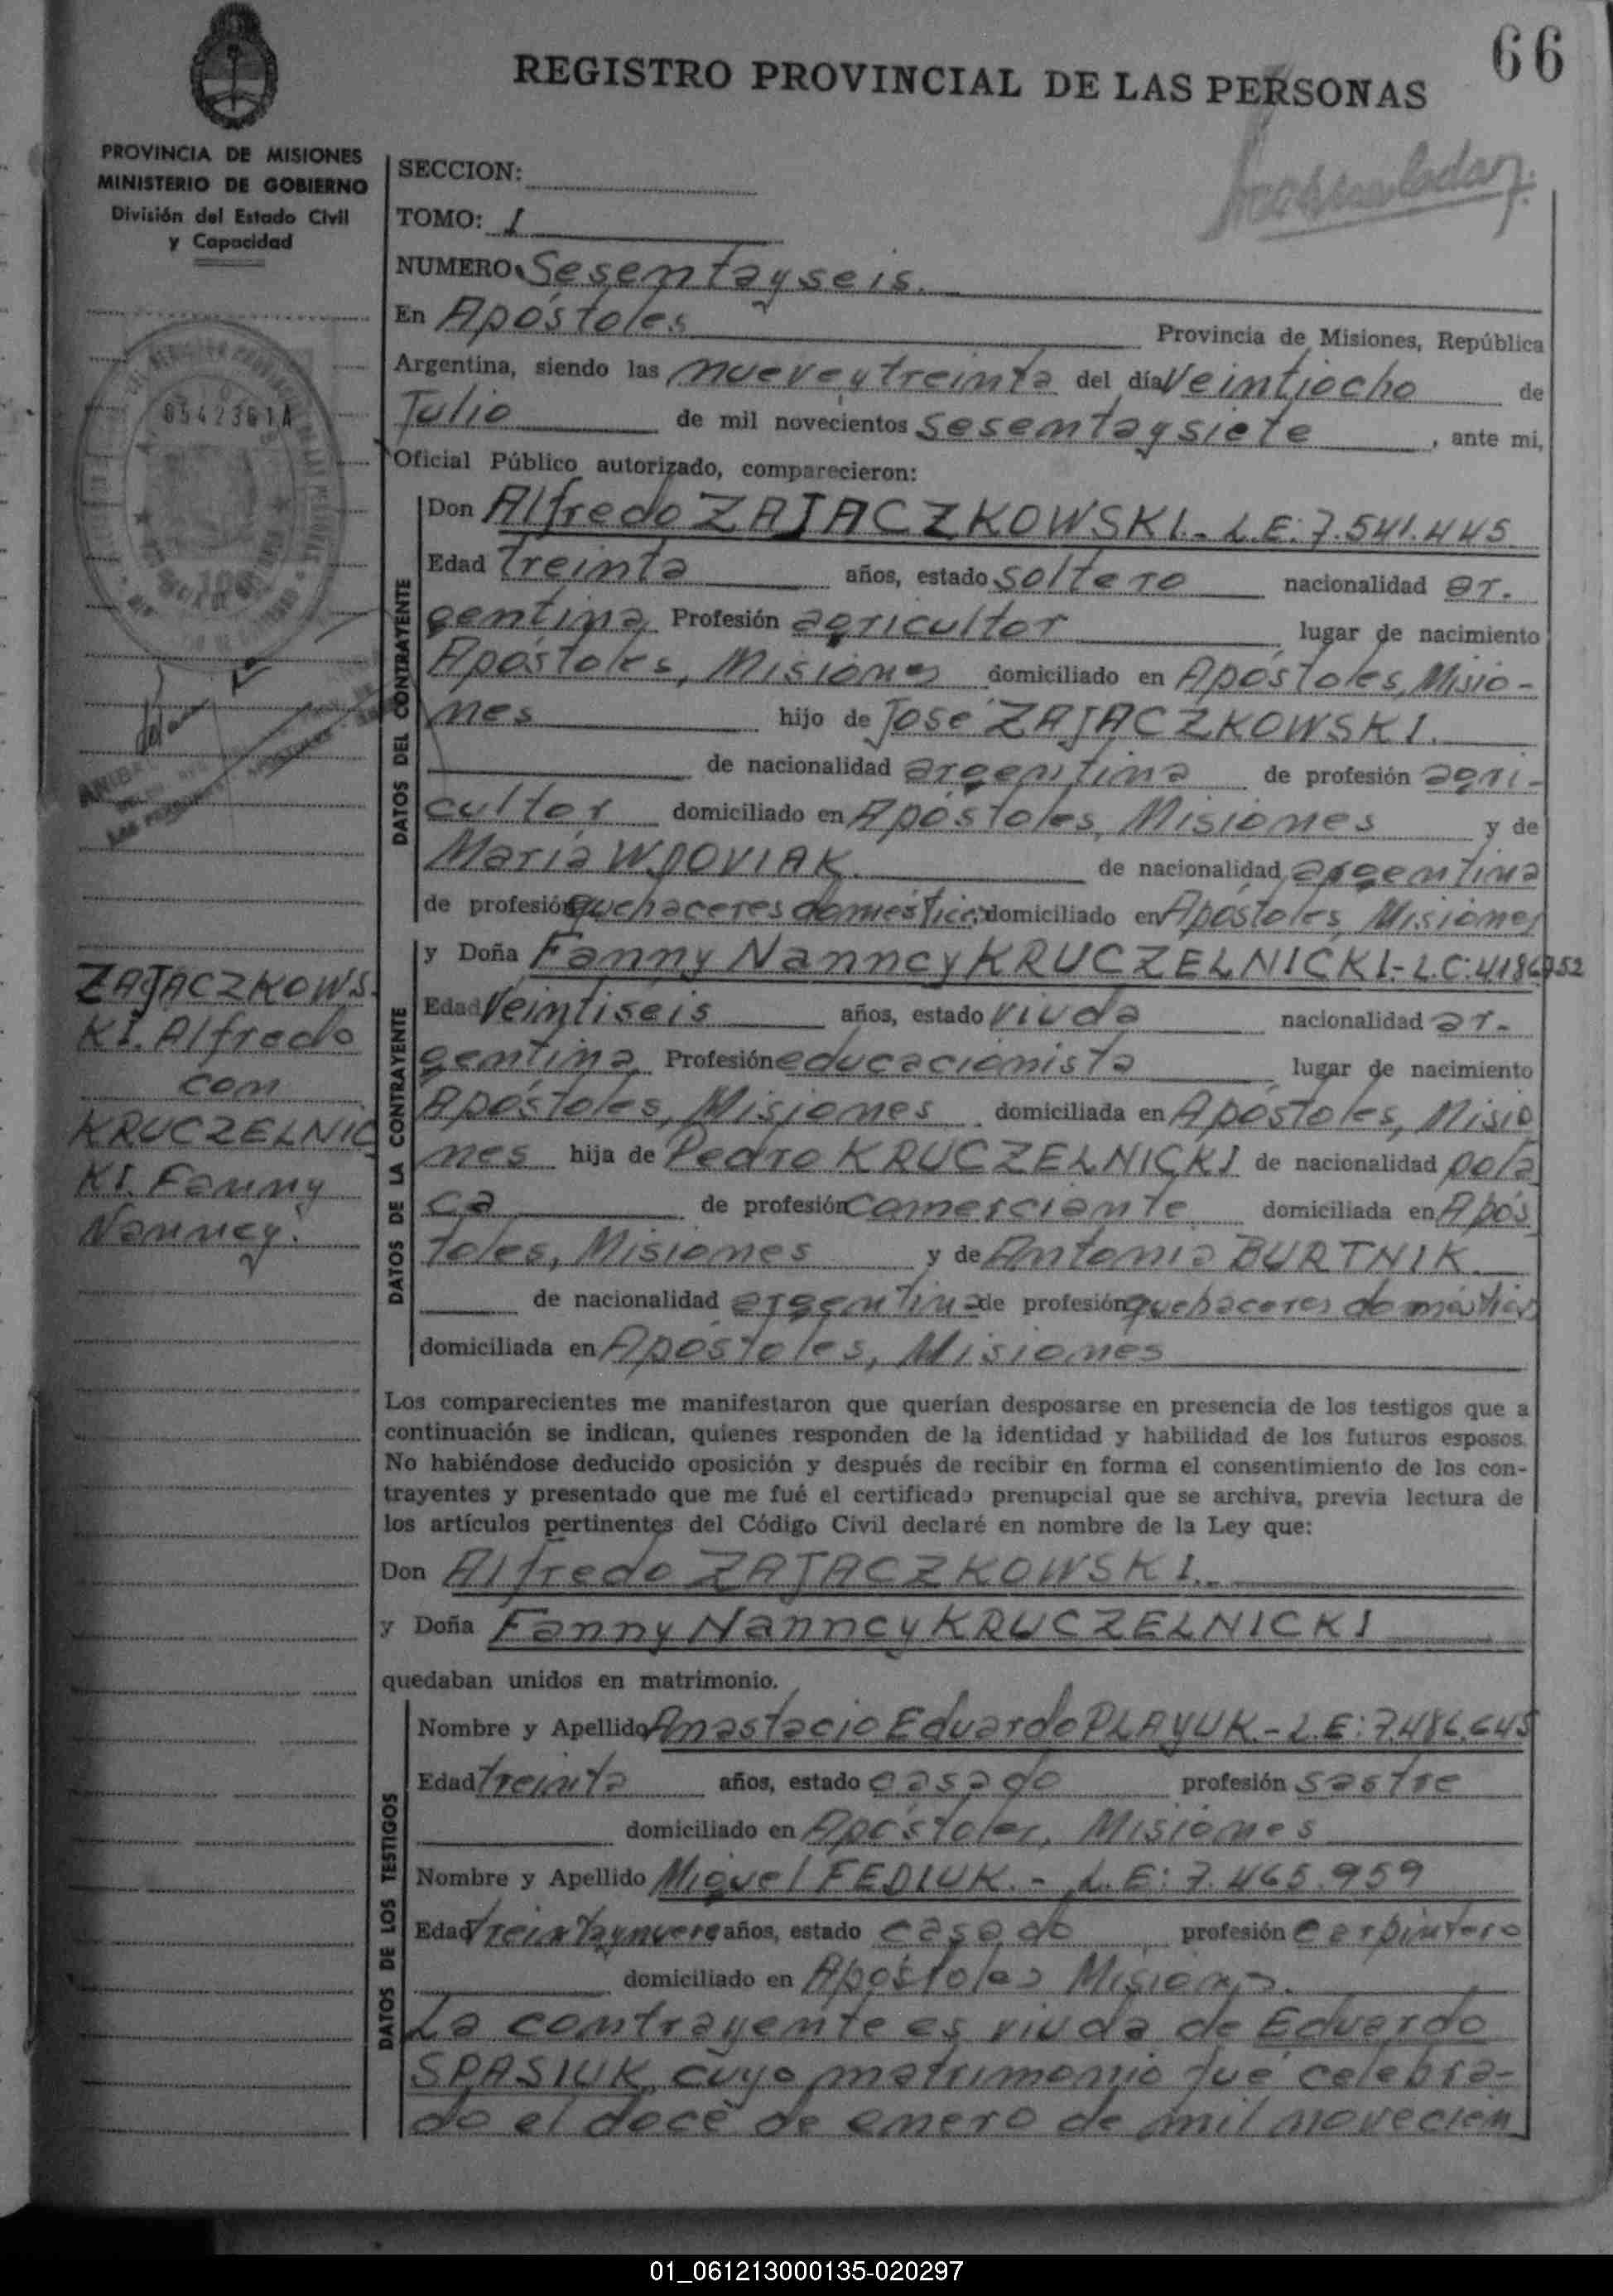 66
REGISTRO PROVINCIAL DE LAS PERSONAS
PROVINCIA DE MISIONES
MINISTERIO DE GOBIERNO
División del Estado Civil
y Capacidad
0542361A
SECCION:
TOMO: I
NUMERO: Sesentayseis.
En Apóstoles Provincia de Misiones, República
Argentina, siendo las nueveytreinta del día Veintiocho de
Julio de mil novecientos Sesentaysiete, ante mi,
Oficial Público autorizado, comparecieron:
DATOS DEL CONTRAYENTE
Don Alfredo ZAJACZKOWSKI.- L.E: 7.541.445
Edad treinta años, estado soltero nacionalidad ar-
gentina, Profesión agricultor lugar de nacimiento
Apóstoles, Misiones domiciliado en Apóstoles, Misio-
nes hijo de José ZAJACZKOWSKI.
de nacionalidad argentina de profesión agri-
cultor domiciliado en Apóstoles, Misiones y de
María WDOVIAK. de nacionalidad argentina
de profesión quehaceres domésticos domiciliado en Apóstoles, Misiones
DATOS DE LA CONTRAYENTE
y Doña Fanny Nanncy KRUCZELNICKI.- L.C:
Edad Veintiseis años, estado viuda nacionalidad ar-
gentina, Profesión educacionista lugar de nacimiento
Apóstoles, Misiones domiciliada en Apóstoles, Misio
nes hija de Pedro KRUCZELNICKI de nacionalidad pola
ca de profesión comerciante domiciliada en Após
toles, Misiones y de Antonia BURTNIK
de nacionalidad argentina de profesión quehaceres domésticos
domiciliada en Apóstoles, Misiones
ZAJACZKOWS-
KI. Alfredo
con
KRUCZELNIC
KI. Fanny
Nanncy.
Los comparecientes me manifestaron que querían desposarse en presencia de los testigos que a
continuación se indican, quienes responden de la identidad y habilidad de los futuros esposos.
No habiéndose deducido oposición y después de recibir en forma el consentimiento de los con-
trayentes y presentado que me fué el certificado prenupcial que se archiva, previa lectura de
los artículos pertinentes del Código Civil declaré en nombre de la Ley que:
Don Alfredo ZAJACZKOWSKI.
y Doña Fanny Nanncy KRUCZELNICKI
quedaban unidos en matrimonio.
DATOS DE LOS TESTIGOS
Nombre y Apellido Anastacio Eduardo PLAYUK.- L.E: 7.486.645
Edad treinta años, estado casado profesión sastre
domiciliado en Apóstoles, Misiones
Nombre y Apellido Miguel FEDIUK.- L.E: 7.465.959
Edad treintaynueve años, estado casado profesión carpintero
domiciliado en Apóstoles Misiones.
La contrayente es viuda de Eduardo
SPASIUK, cuyo matrimonio fué celebra-
do el doce de enero de mil novecien
01_061213000135-020297